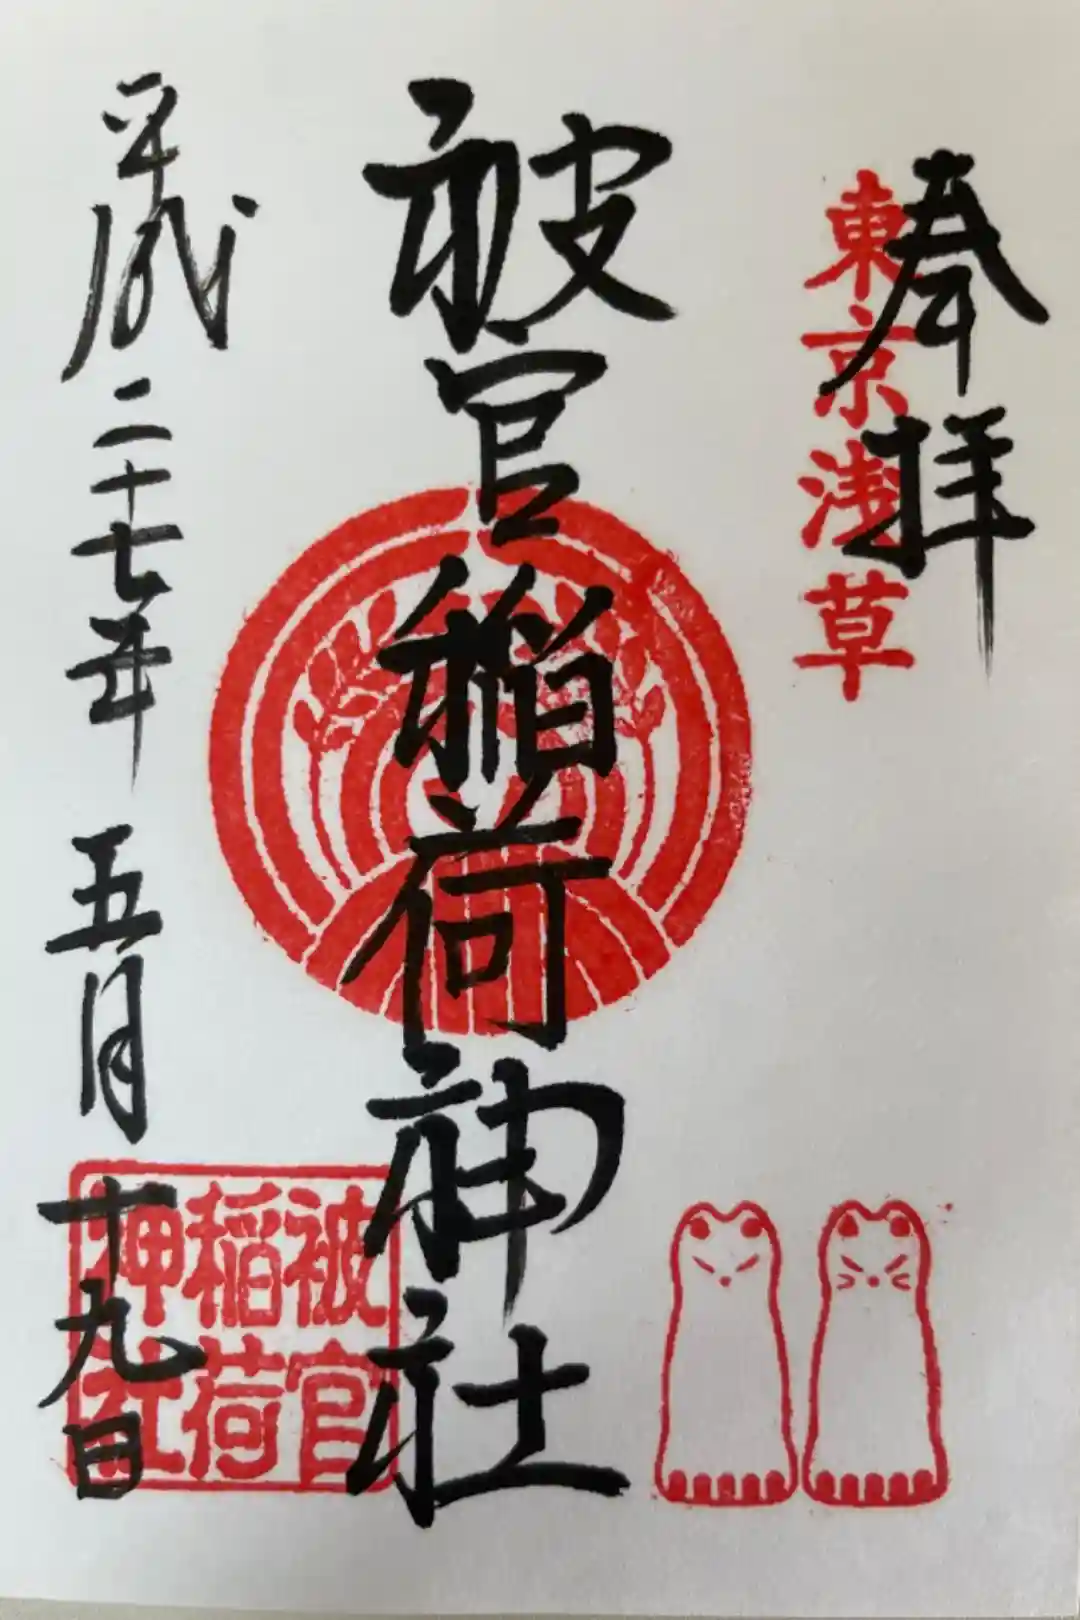 奉拝
東京浅草
被官稲荷神社
平成二十七年 五月 十九日
被官
稲荷
神社